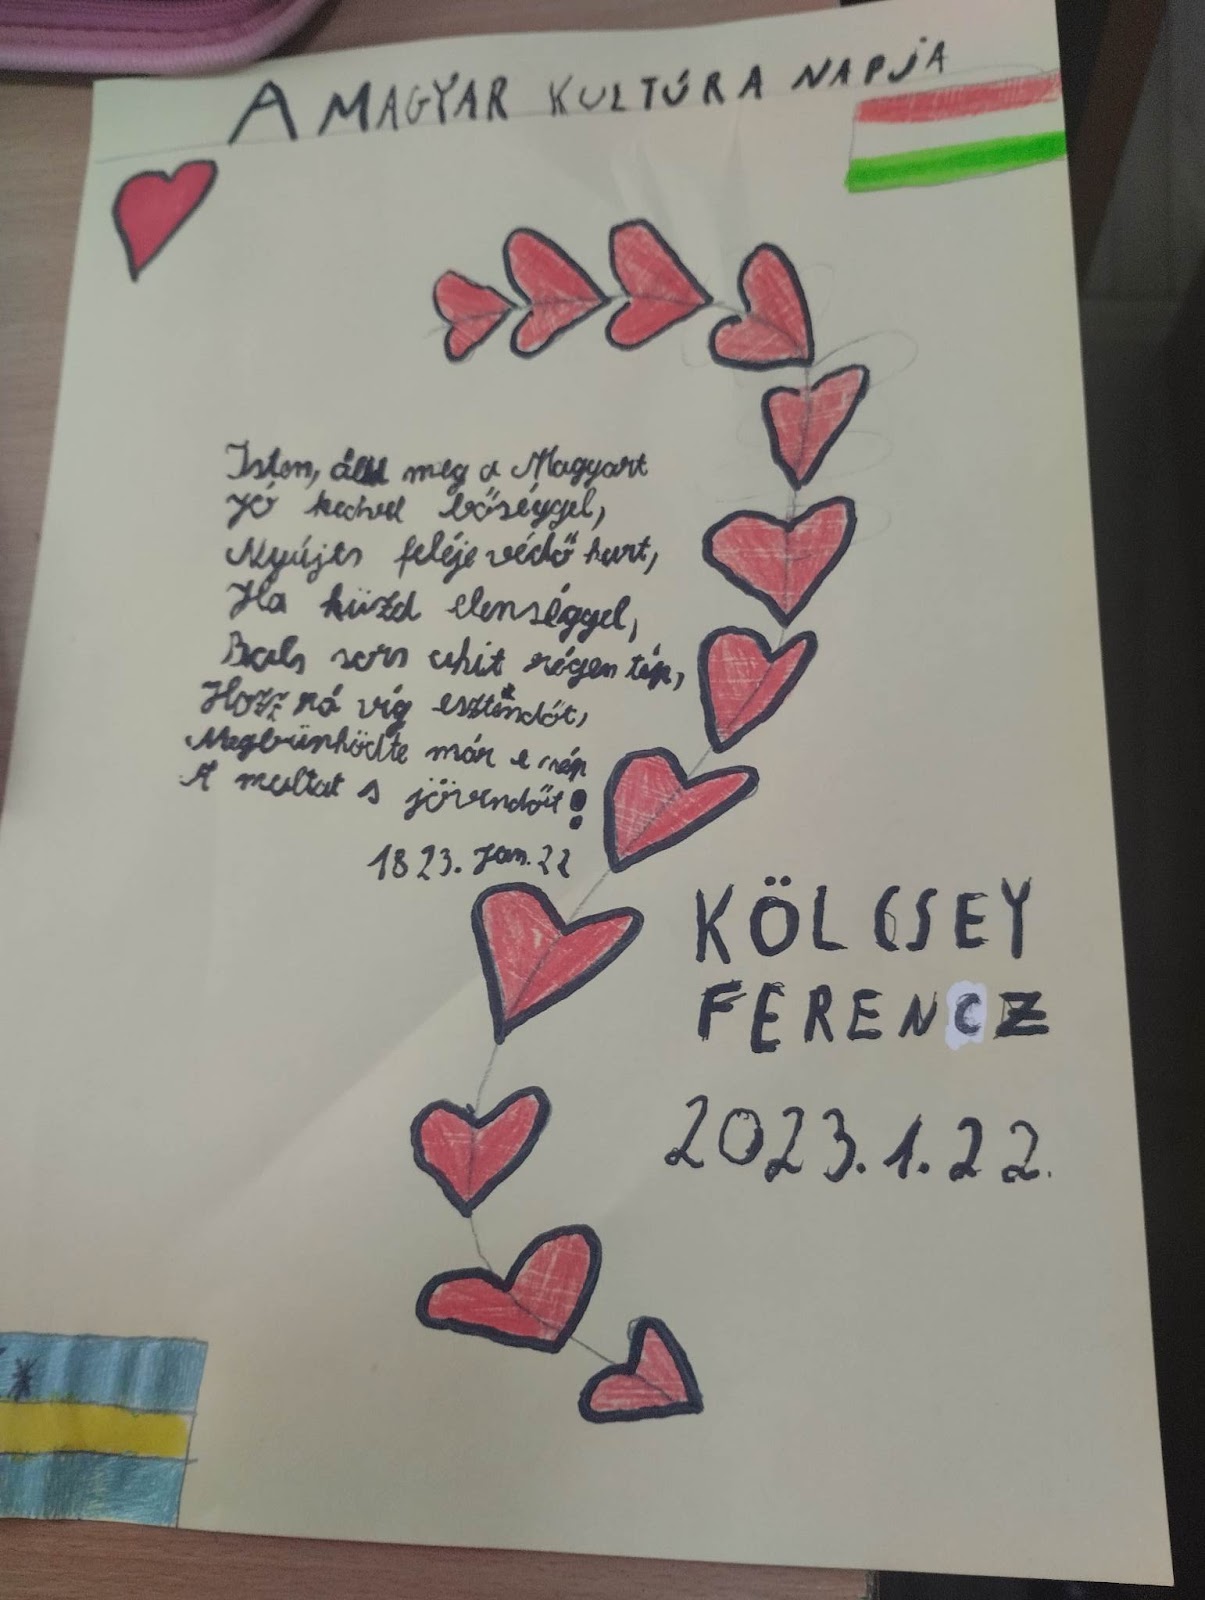 A MAGYAR KULTÚRA NAPJA
Isten, áldd meg a Magyart
Jó kedvel bőséggel,
Nyújts feléje védő kart,
Ha küzd elenséggel,
Bals sors akit régen tép,
Hozz rá víg esztendőt,
Megbűnhödte már e nép
A multat s jövendőt!
1823. Jan. 22
KÖLCSEY
FERENCZ
2023.1.22.